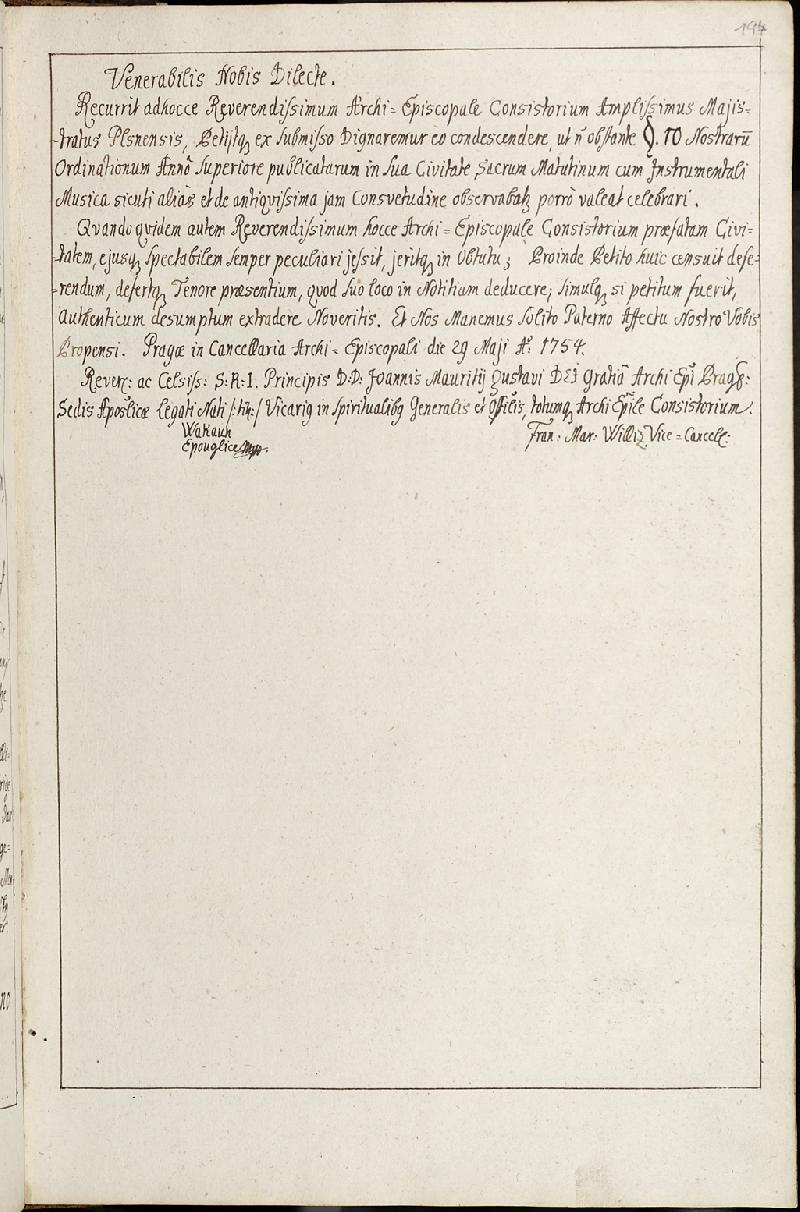 Venerabilis Nobis Dilecte.
Recurrit adhocce Reverendissimum Archi=Episcopale Consistorium Amplissimus Majis=
=tratus Plsnensis, Petijtq; ex submisso Dignaremur eo condescendere, ut n̄ obstante §. 10 Nostrarū
Ordinationum Annô Superiore publicatarum in sua Civitate Sacrum Matutinum cum Instrumentali
Musica sicuti aliàs et de antiquissima jam Consvetudine observabatq; porrò valeat celebrari.
Quando quidem autem Reverendissimum hocce Archi=Episcopale Consistorium præfatam Civi=
=tatem, ejusq; spectabilem semper peculiari jessit, jeritq; in Obtutu; Proinde Petito huic censuit defe=
=rendum, defertq; Tenore præsentium, quod suo loco in Notitiam deducere, simulq; si petitum fuerit,
authenticum desumptum extradere Noveritis. Et Nos Manemus solito Paterno Affectu Nostro Vobis
Propensi. Pragæ in Cancellaria Archi=Episcopali die 29 Maji A: 1754.
Rever: ac Celsiss: S:R:I. Principis D:D: Joannis Mauritij Gustavi DEI gratiâ Archi Epī Prag:
Sedis Aposlicæ Legati Nati /:tit:/ Vicariq in spiritualibq Generalis et Offīlis, totumq; Archi Epīle Consistorium.
Fran: Mar: Williz Vice=Cancell:
Epouglice Mpp.